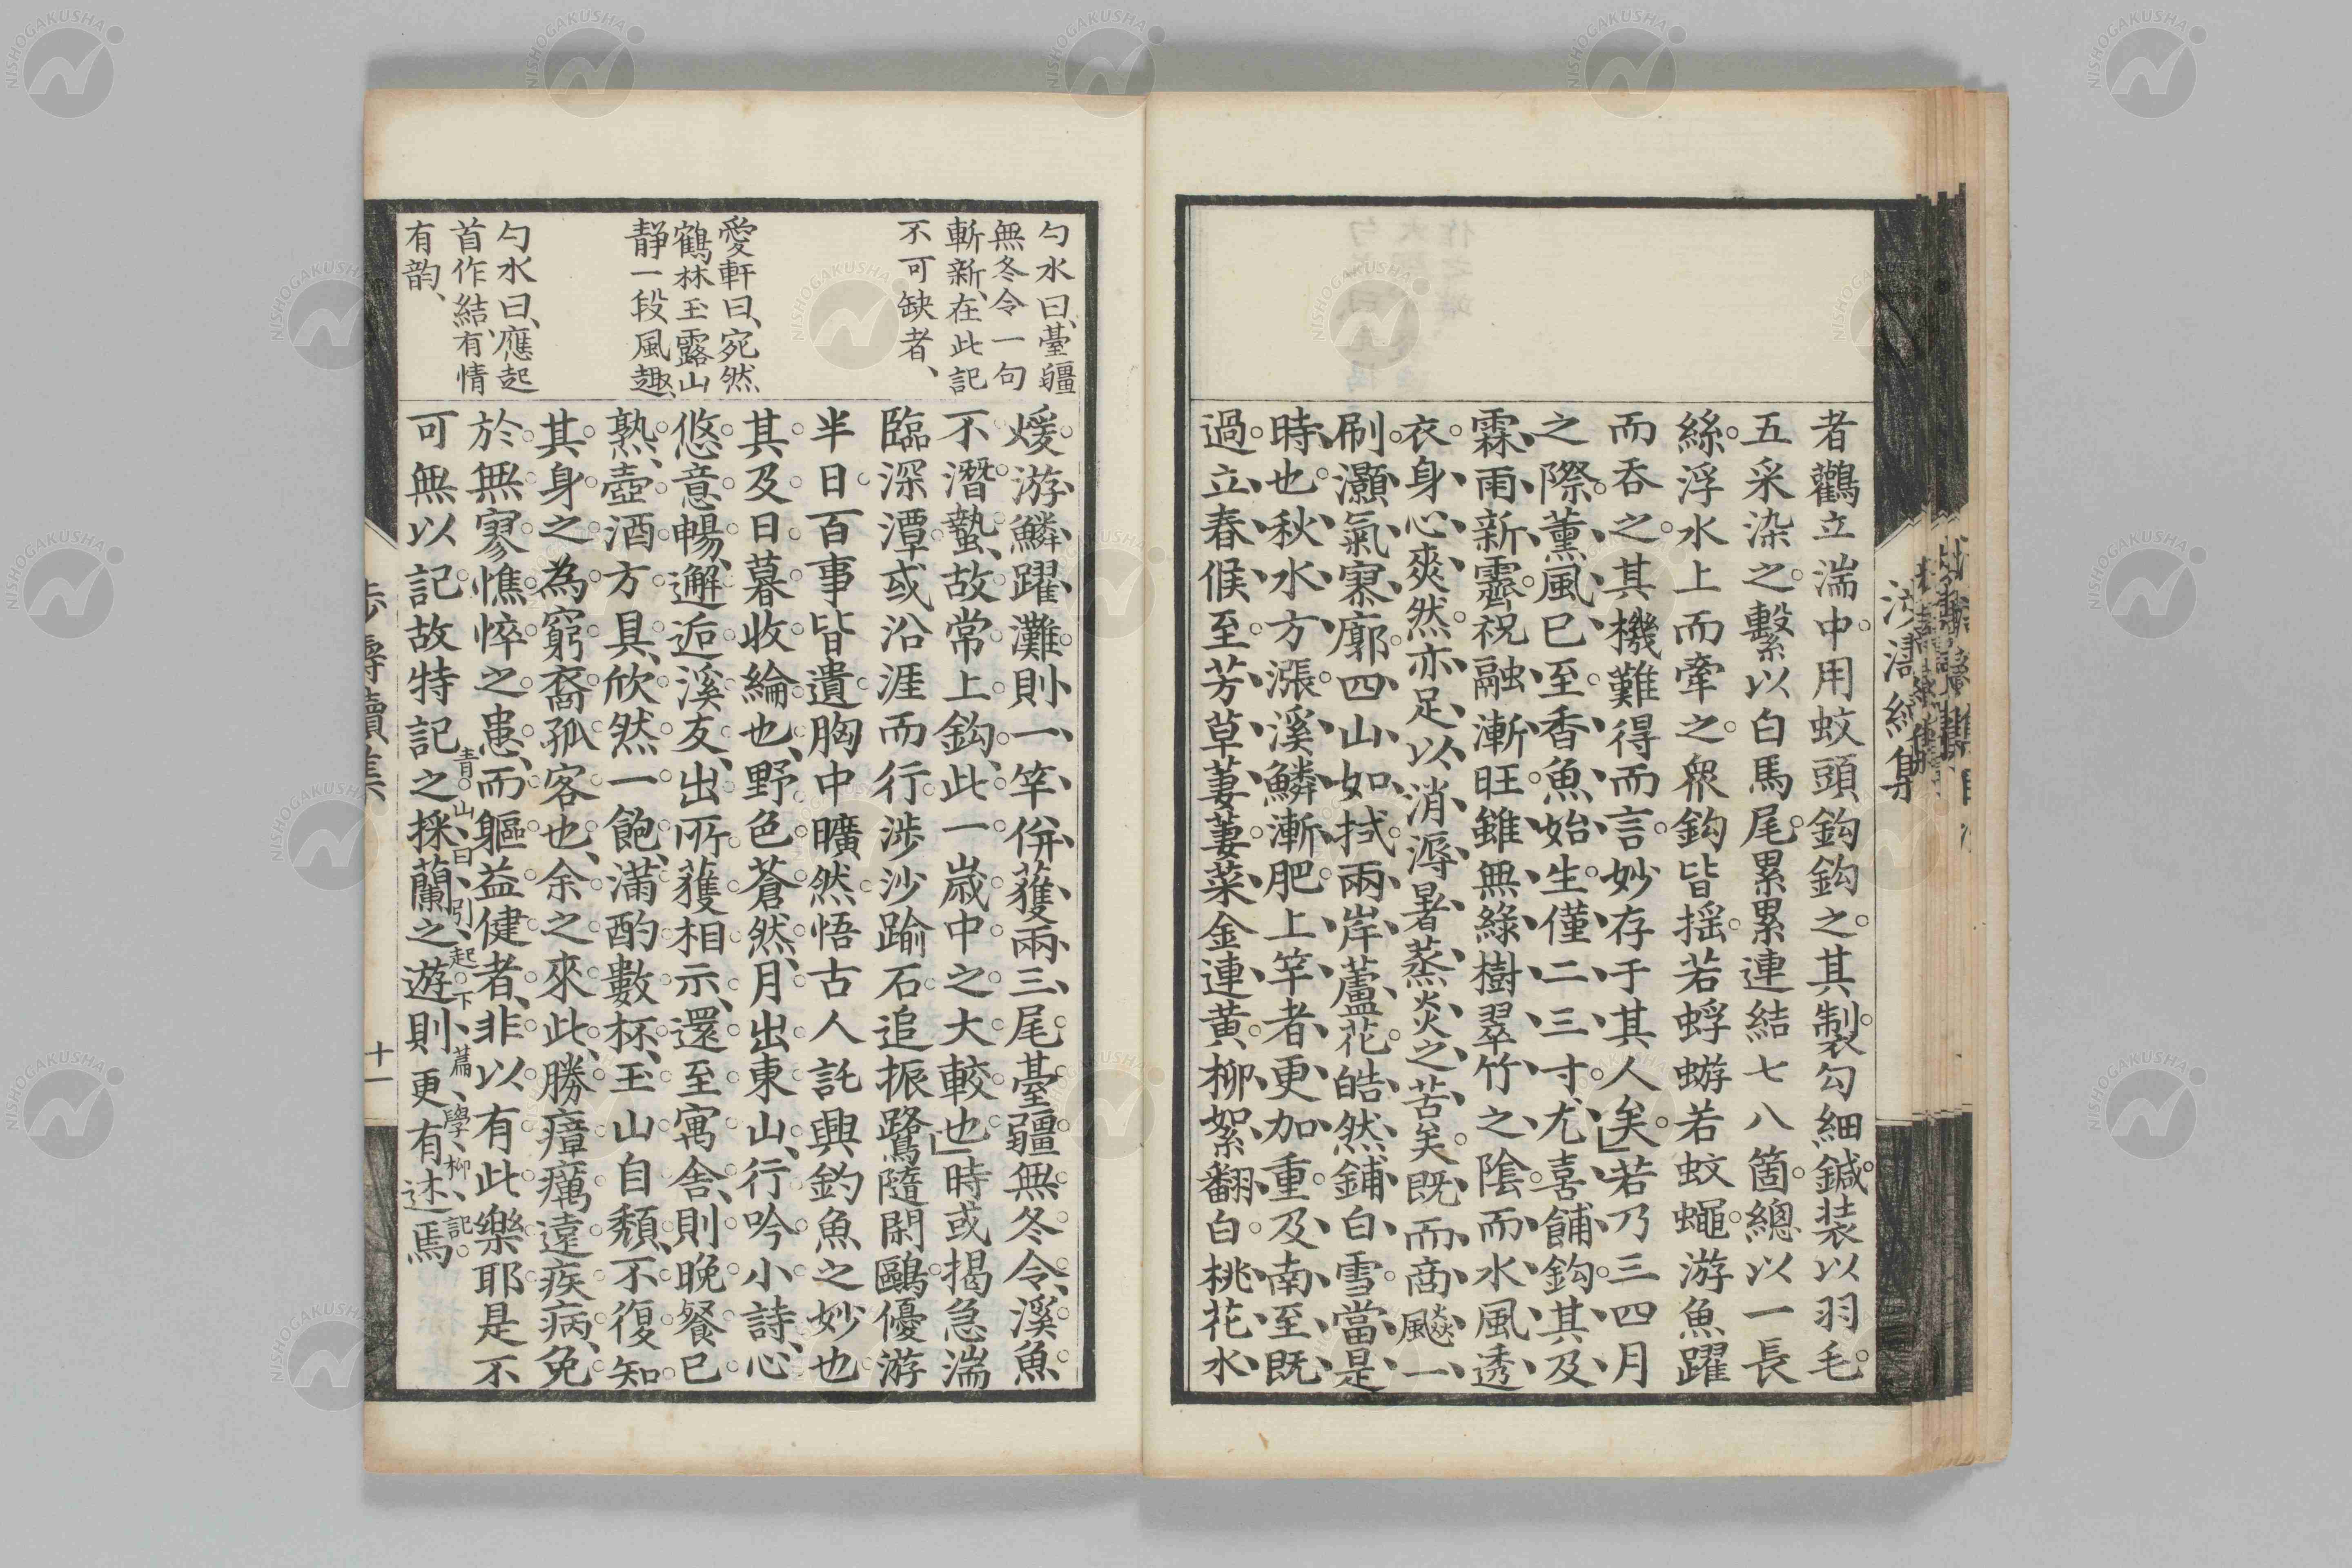 者觀立湍中用蚊頭鈎鈎之其製勾細鍼装以羽毛
五采染之繫以白馬尾累累連結七八箇總以一長
絲浮水上而牽之衆鈎皆揺若蜉蝣若蚊蠅游魚躍
而吞之其機難得而言妙存于其人矣」若乃三四月
之際薰風已至香魚始生僅二三寸尤喜餔鈎其及
霖雨新霽祝融漸旺雖無綠樹翠竹之陰而水風透
衣身心爽然亦足以消溽暑蒸炎之苦矣既而商飈一
刷灝氣寥廓四山如拭兩岸蘆花皓然鋪白雪當是
時也秋水方漲溪鱗漸肥上竿者更加重及南至既
過立春候至芳草萋萋菜金連黄柳絮翻白桃花水
煖游鱗躍灘則一竿併獲兩三尾臺疆無冬令溪魚
不潛蟄故常上鈎此一歲中之大較也」時或揭急湍
臨深潭或沿涯而行渉沙踰石追振鷺隨閑鷗優游
半日百事皆遺胸中曠然悟古人託興釣魚之妙也
其及日暮收綸也野色蒼然月出東山行吟小詩心
悠意暢邂逅溪友出所獲相示還至寓舎則晚餐已
熟壺酒方具欣然一飽滿酌數杯玉山自頽不復知
其身之為窮裔孤客也余之來此勝瘴癘遠疾病免
於無寥憔悴之患而軀益健者非以有此樂耶是不
可無以記故特記之採蘭之遊則更有述焉
青山曰引起下篇學柳記
勺水曰臺疆
無冬令一句
斬新在此記
不可缺者、
愛軒曰、宛然
鶴林玉露山
静一段風趣、
勺水曰、應起
首作結、有情
有韵、
十一